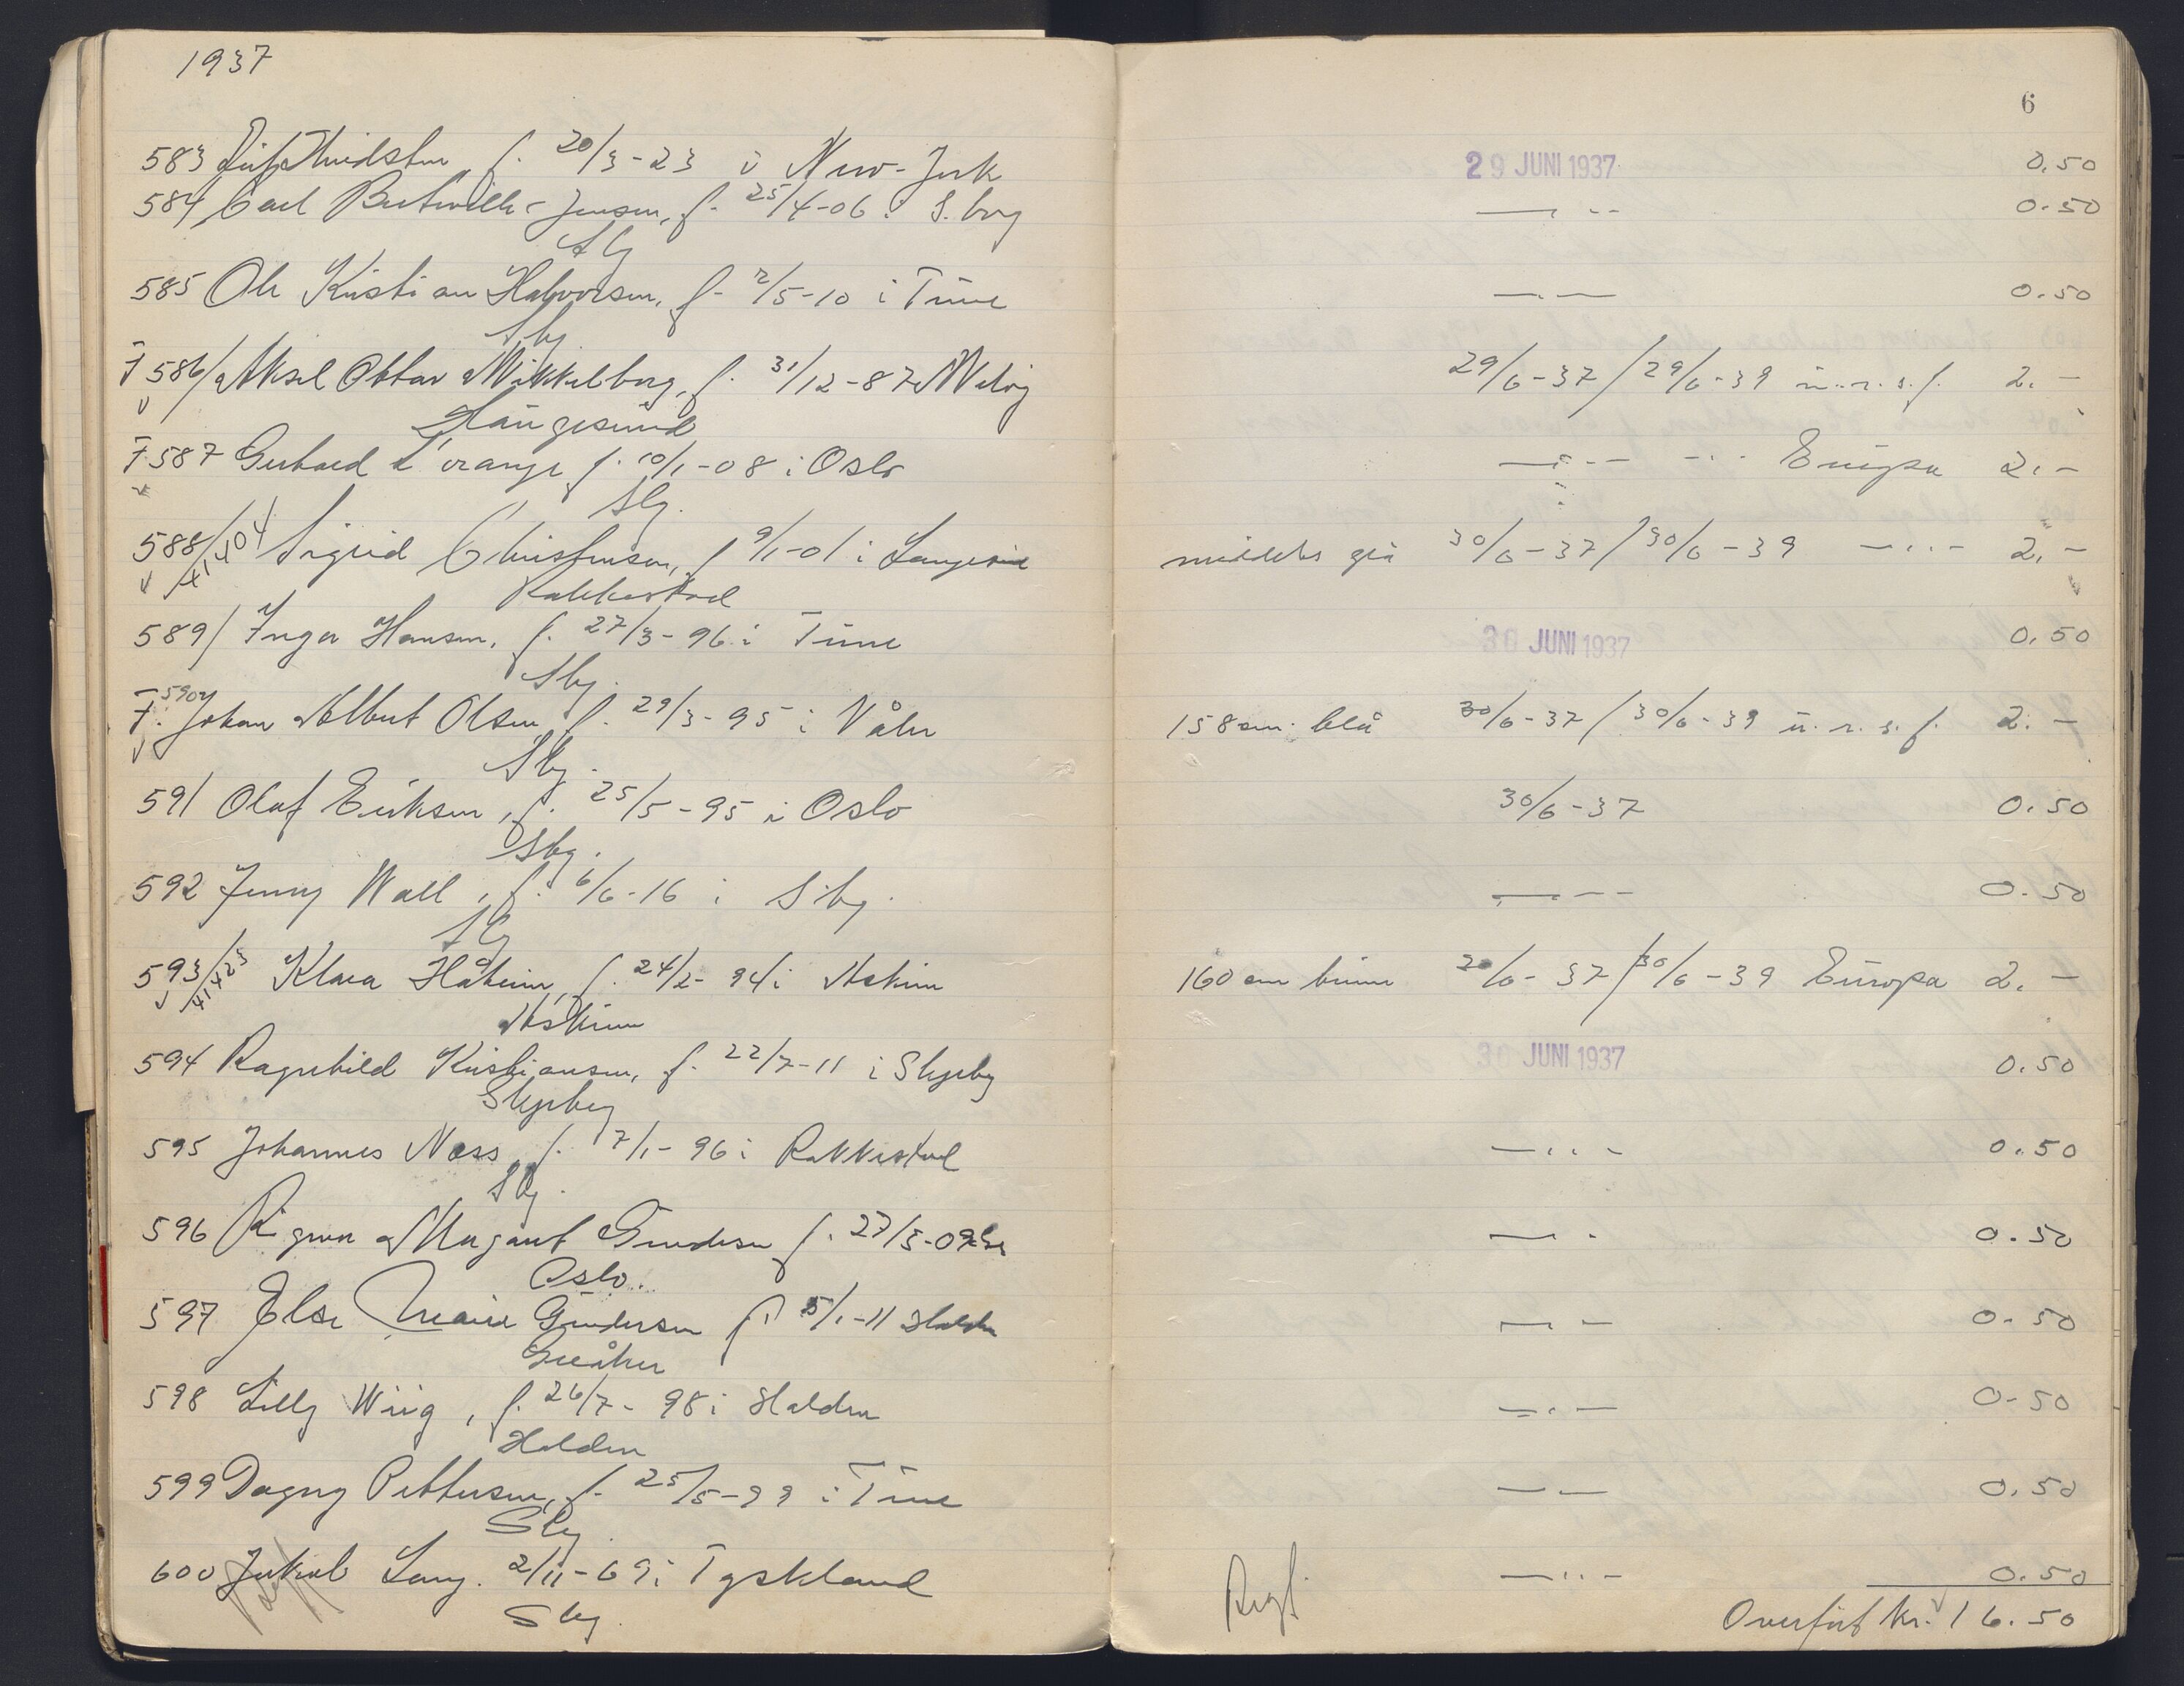 1937
6
583 f. 20/3-23 i New-Jork 29 JUNI 1937 0.50
584 Carl Jensen, f. 25/4-06 i S.borg —"— 0.50
Sbg
585 Ole Kristian Halvorsen, f. 2/5-10 i Tune —"— 0.50
Sbg.
F 586/ Aksel Ottar Mikkelborg, f. 31/12-87 29/6-37/29/6-39 u.r.s.f. 2.-
Haugesund
F 587 Gerhard L'orange f. 10/1-08 i Oslo —"— —"— Europa 2.-
Sbg.
588/ Sigrid Christensen, f 9/1-01 i Langesund middels grå 30/6-37/30/6-39 —"— 2.-
Rakkestad
589/ Inger Hansen, f. 27/3-96 i Tune 30 JUNI 1937 0.50
Sbg.
F. 590/ Johan Albert Olsen, f. 29/3-95 i Våler 158 cm. blå 30/6-37/30/6-39 u.r.s.f. 2.-
Sbg.
591 Olaf Eriksen, f. 25/5-95 i Oslo 30/6-37 0.50
Sbg.
592 Jenny Wall, f. 6/6-16 i Sbg. —"— 0.50
Sbg
593/ Klara Håheim, f. 24/2-94 i Askim 160 cm brune 30/6-37/30/6-39 Europa 2.-
Askim
594 Ragnhild Kristiansen, f. 22/7-11 i Skjeberg 30 JUNI 1937 0.50
Skjeberg
595 Johannes Næss f. 7/1-96 i Rakkestad —"— 0.50
Sbg.
596 Margant Gundersen f. 27/5-09 —"— 0.50
Oslo.
597 Else Marie Gundersen f. 5/1-11 Halden —"— 0.50
Greåker
598 Lilly Wiig, f. 26/7-98 i Halden —"— 0-50
Halden
599 Dagny Pettersen, f. 25/5-99 i Tune —"— 0.50
Sbg.
600 Jakob Lang. 2/11-69 i Tyskland —"— 0.50
Sbg. Overført kr. 16.50